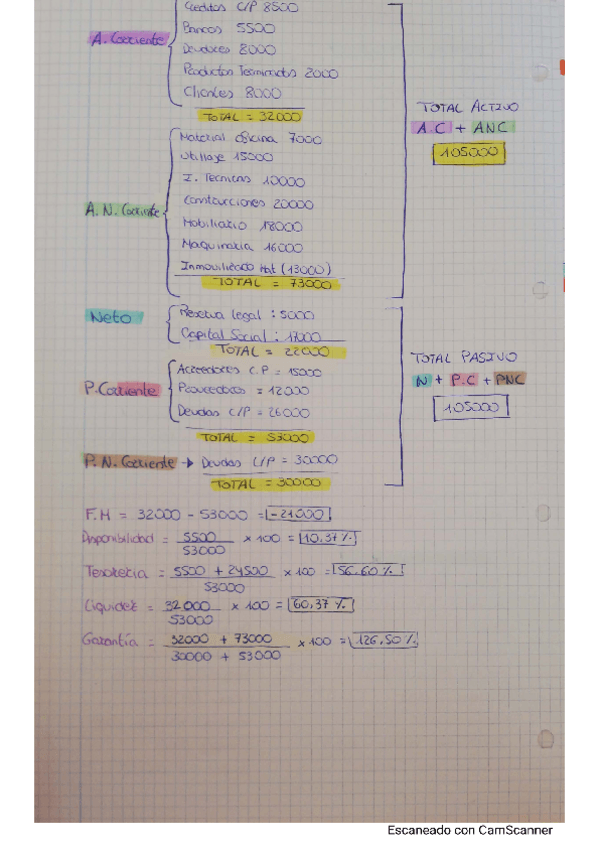 Creditos C/P 8500
A. Corriente
Bancos 5500
Deudores 8000
Productos Terminados 2000
Clientes 8000
TOTAL = 32000
TOTAL ACTIVO
A.C + ANC
105000
Material oficina 7000
Utillaje 15000
I. Tecnicas 10000
A.N. Corriente
Construcciones 20000
Mobiliario 18000
Maquinaria 16000
Inmovilizado Mat (13000)
TOTAL = 73000
Neto
Reserva legal : 5000
Capital Social : 17000
TOTAL = 22000
TOTAL PASIVO
N + P.C + PNC
105000
P.Corriente
Acreedores C.P = 15000
Proveedores = 12000
Deudas C/P = 26000
TOTAL = 53000
P.N. Corriente → Deudas L/P = 30000
TOTAL = 30000
F.M = 32000 - 53000 = -21000
Disponibilidad = 5500 / 53000 × 100 = 10.37 %
Tesoreria = 5500 + 24500 / 53000 × 100 = 56.60 %
Liquidez = 32000 / 53000 × 100 = 60.37 %
Garantía = 32000 + 73000 / 30000 + 53000 × 100 = 126.50 %
Escaneado con CamScanner